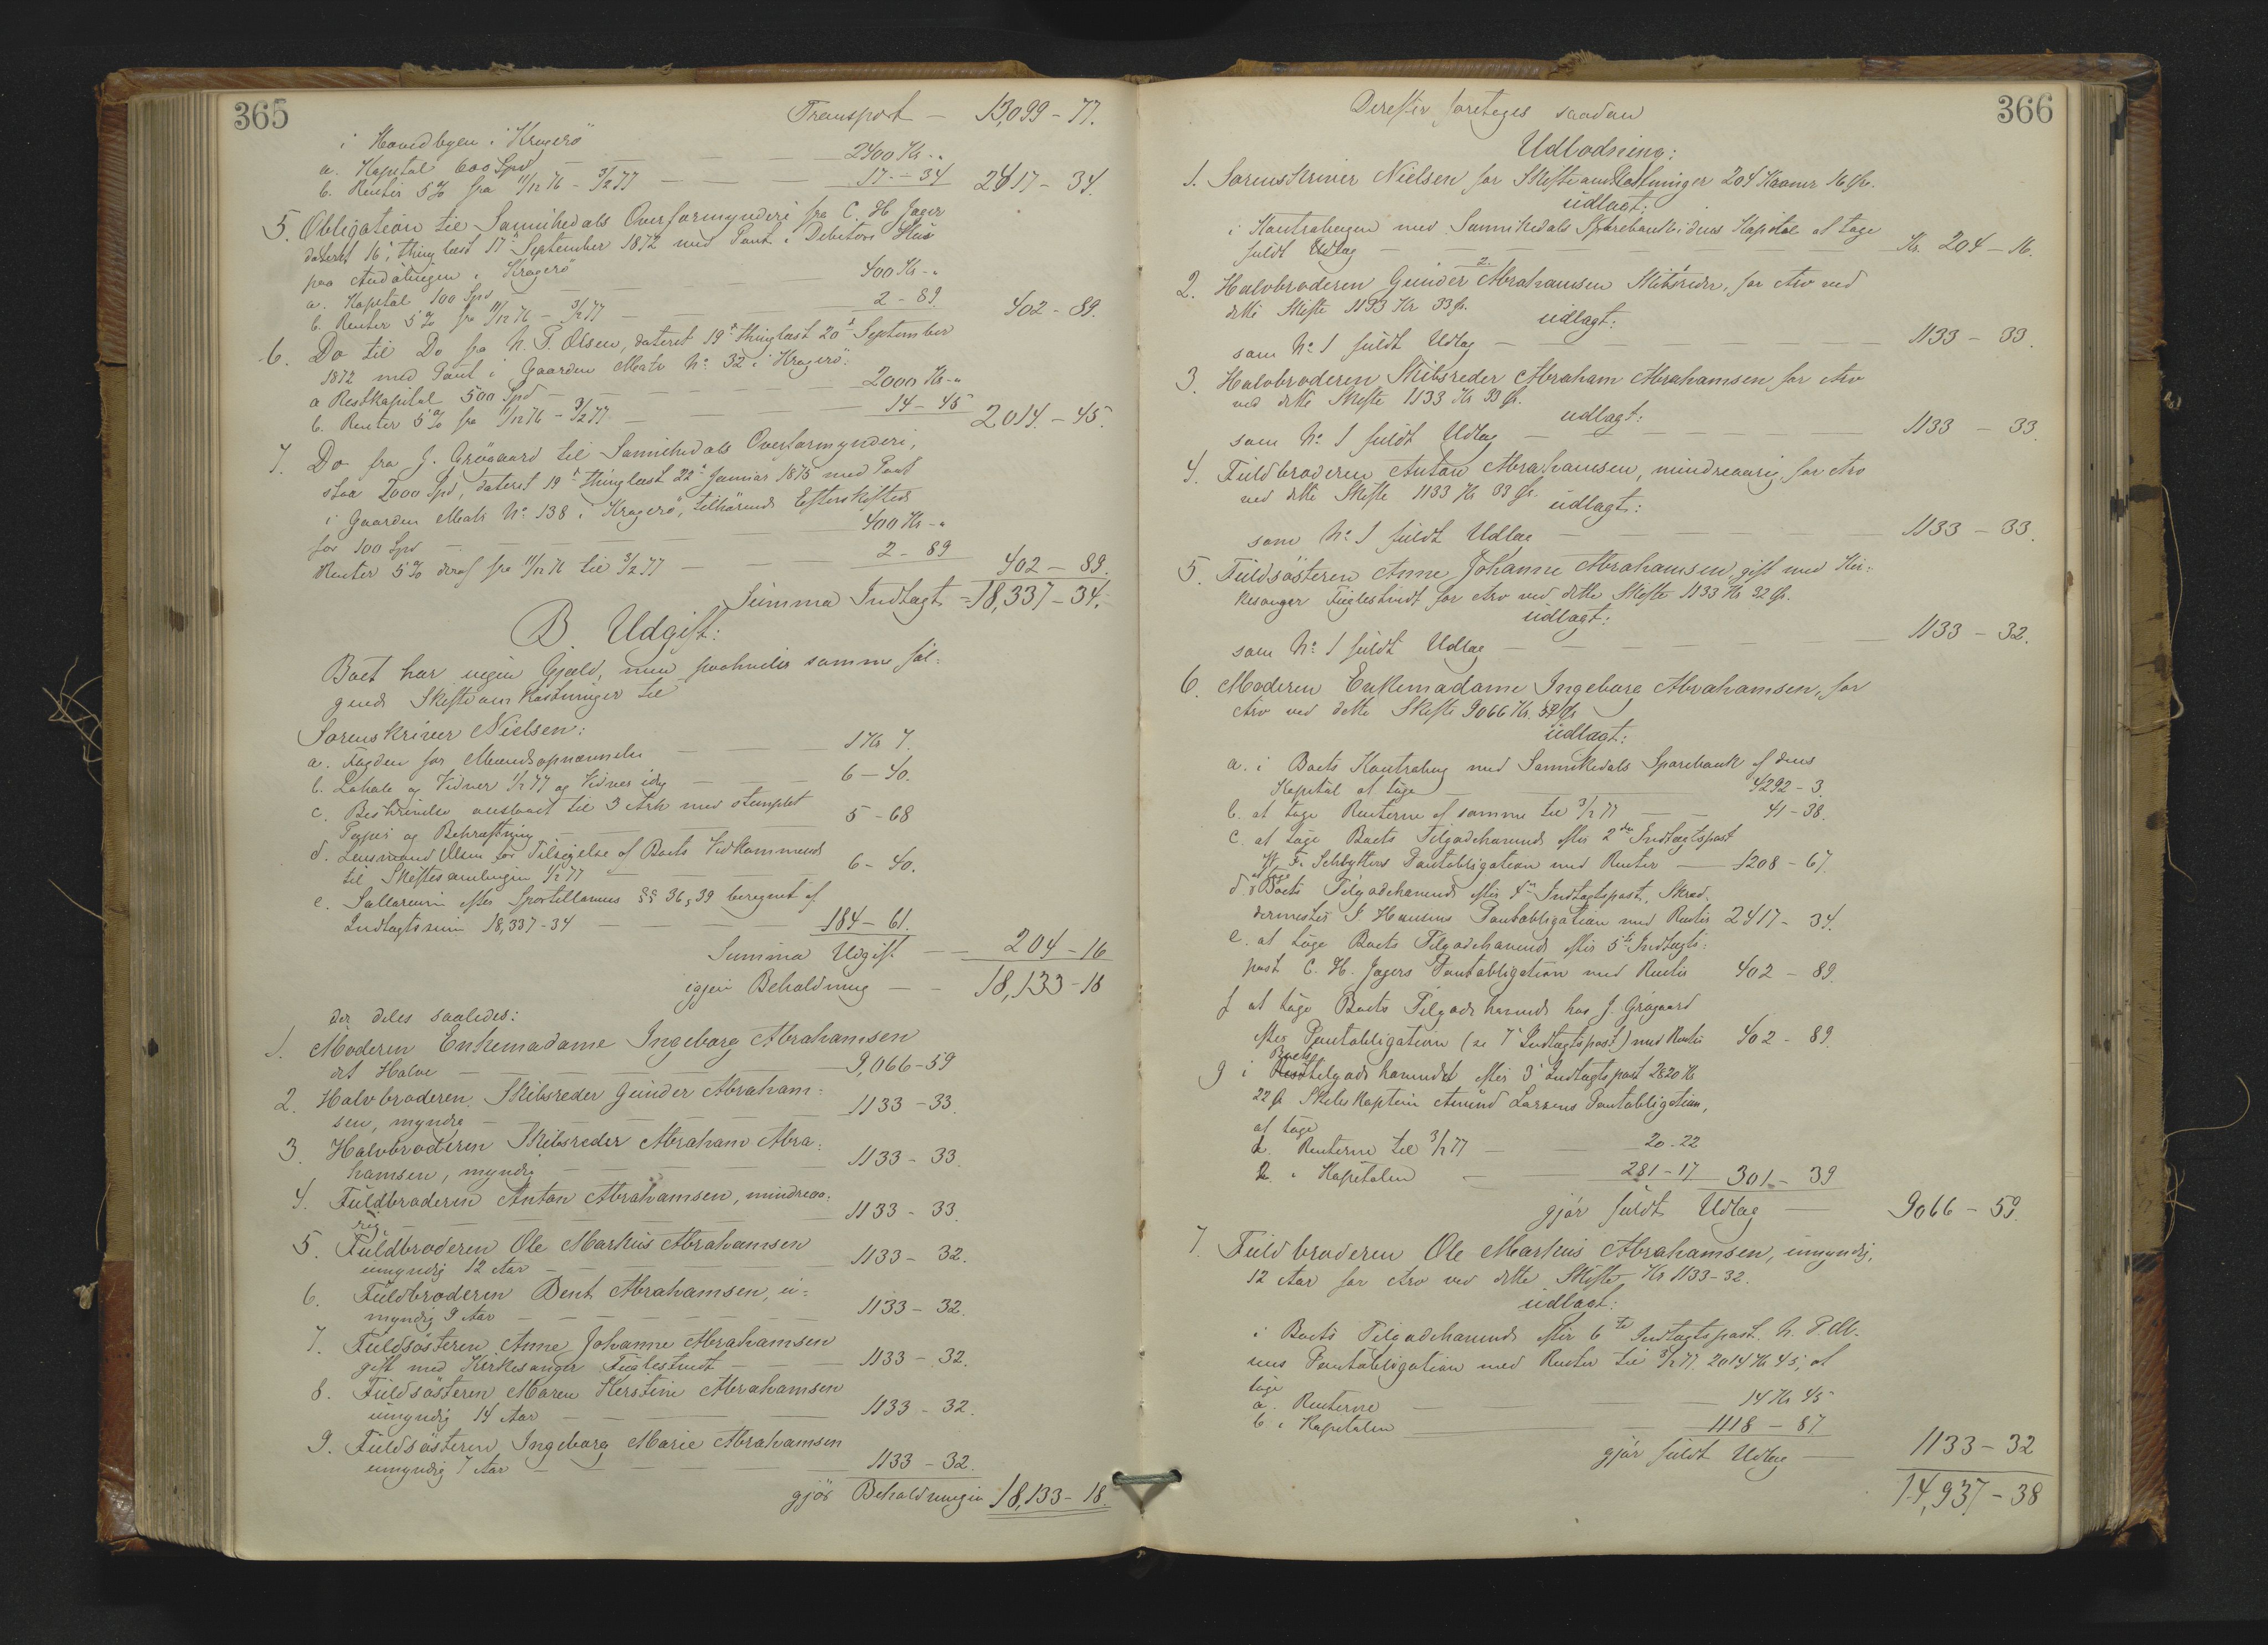 365
Transport — 13,099 - 77.
i Hovedbyen i Kragerö
a. Kapital 600 Spd — 2400 Kr -„
b. Renter 5% fra 11/12 76 - 3/2 77 — 17 - 34 2417 - 34.
5. Obligation til Sannikedals Overformynderi fra C. H. Jager
dateret 16', thinglæst 17' September 1872 med Pant i Debitors Hus
paa Andöbingen i Kragerö
a. Kapital 100 Spd — 400 Kr -„
b. Renter 5% fra 11/12 76 - 3/2 77 — 2 - 89 402 - 89.
6. Do til Do fra N. P. Olsen, dateret 19' thinglæst 20' September
1872 med Pant i Gaarden Matr No 32 i Kragerö:
a Restkapital 500 Spd — 2000 Kr -„
b. Renter 5% fra 11/12 76 - 3/2 77 — 14 - 45 2014 - 45.
7. Do fra J. Grögaard til Sannikedals Overformynderi,
stor 2000 Spd, dateret 19' thinglæst 22' Januar 1875 med Pant
i Gaarden Matr No 138 i Kragerö, tilhörende Efterskiftede
for 100 Spd — 400 Kr -„
Renter 5% deraf fra 11/12 76 til 3/2 77 — 2 - 89 402 - 89.
Summa Indtægt = 18,337 - 34.
B. Udgift:
Boet har ingen Gjæld, men paahviler samme föl-
gende Skifteomkostninger til
Sorenskriver Nielsen:
a. Fogden for Mændsopnævnelse — 1 Kr 7.
b. Lokale og Vidner 1/2 77 og Vidner idag — 6 - 40.
c. Beskrivelse anslaaet til 3 Ark med stemplet
Papir og Bekræftning — 5 - 68
d. Lensmand Olsen for Tilsigelse af Boets Vedkommende
til Skiftesamlingen 1/2 77 — 6 - 40.
e. Sallarium efter Sportellovens §§ 36, 39 beregnet af
Indtægtssum 18,337 - 34 — 184 - 61.
Summa Udgift — 204 - 16
igjen Beholdning — 18,133 - 18
der deles saaledes:
1. Moderen Enkemadame Ingeborg Abrahamsen
det Halve — 9,066 - 59
2. Halvbroderen Skibsreder Gunder Abraham-
sen, myndig — 1133 - 33.
3. Halvbroderen Skibsreder Abraham Abra-
hamsen, myndig — 1133 - 33.
4. Fuldbroderen Anton Abrahamsen, mindreaa-
rig. — 1133 - 33.
5. Fuldbroderen Ole Markus Abrahamsen
umyndig 12 Aar — 1133 - 32.
6. Fuldbroderen Bent Abrahamsen, u-
myndig 9 Aar — 1133 - 32.
7. Fuldsösteren Anne Johanne Abrahamsen
gift med Kirkesanger Fuglestvedt — 1133 - 32.
8. Fuldsösteren Maren Kerstine Abrahamsen
umyndig 14 Aar — 1133 - 32.
9. Fuldsösteren Ingeborg Marie Abrahamsen
umyndig 7 Aar — 1133 - 32.
gjör Beholdningen 18,133 - 18.
366
Derefter foretoges saadan
Udlodning:
1. Sorenskriver Nielsen for Skifteomkostninger 204 Kroner 16 Ør.
udlagt:
i Kontrabogen med Sannikedals Sparebank i dens Kapital at tage
fuldt Udlæg — Kr. 204 - 16.
2.
2. Halvbroderen Gunder Abrahamsen Skibsreder, for Arv ved
dette Skifte 1133 Kr 33 Ør.
udlagt:
som No 1 fuldt Udlæg — 1133 - 33.
3. Halvbroderen Skibsreder Abraham Abrahamsen for Arv
ved dette Skifte 1133 Kr 33 Ør.
udlagt:
som No 1 fuldt Udlæg — 1133 - 33.
4. Fuldbroderen Anton Abrahamsen, mindreaarig, for Arv
ved dette Skifte 1133 Kr 33 Ør.
udlagt:
som No 1 fuldt Udlæg — 1133 - 33.
5. Fuldsösteren Anne Johanne Abrahamsen gift med Kir-
kesanger Fuglestvedt for Arv ved dette Skifte 1133 Kr 32 Ør.
udlagt:
som No 1 fuldt Udlæg — 1133 - 32.
6. Moderen Enkemadame Ingeborg Abrahamsen, for
Arv ved dette Skifte 9066 Kr. 59 Ør
udlagt:
a. i Boets Kontrabog med Sannikedals Sparebank af dens
Kapital at tage — 4292 - 3.
b. at tage Renterne af samme til 3/2 77 — 41 - 38.
c. at tage Boets Tilgodehavende efter 2den Indtægtspost
F. Schbytters Pantobligation med Renter — 1208 - 67.
d. Boets Tilgodehavende efter 4de Indtægtspost, Skræd-
dermester J. Hansens Pantobligation med Renter 2417 - 34.
e. at tage Boets Tilgodehavende efter 5te Indtægts-
post C. H. Jagers Pantobligation med Renter 402 - 89.
f at tage Boets Tilgodehavende hos J. Grögaard
efter Pantobligation (se 7' Indtægtspost) med Renter 402 - 89.
g i Boets Tilgodehavendet efter 3' Indtægtspost 2820 Kr
22 Ør Skibskaptein Amund Larsens Pantobligation,
at tage
Renterne til 3/2 77 — 20 - 22
i Kapitalen — 281 - 17 301 - 39
gjör fuldt Udlæg — 9066 - 59.
7. Fuldbroderen Ole Markus Abrahamsen, umyndig,
12 Aar for Arv ved dette Skifte, Kr 1133 - 32.
udlagt:
i Boets Tilgodehavende efter 6te Indtægtspost. N. P. Ol-
sens Pantobligation med Renter til 3/2 77. 2014 Kr 45, at
tage
a. Renterne — 14 Kr 45
b i Kapitalen — 1118 - 87
gjör fuldt Udlæg — 1133 - 32
14,937 - 38